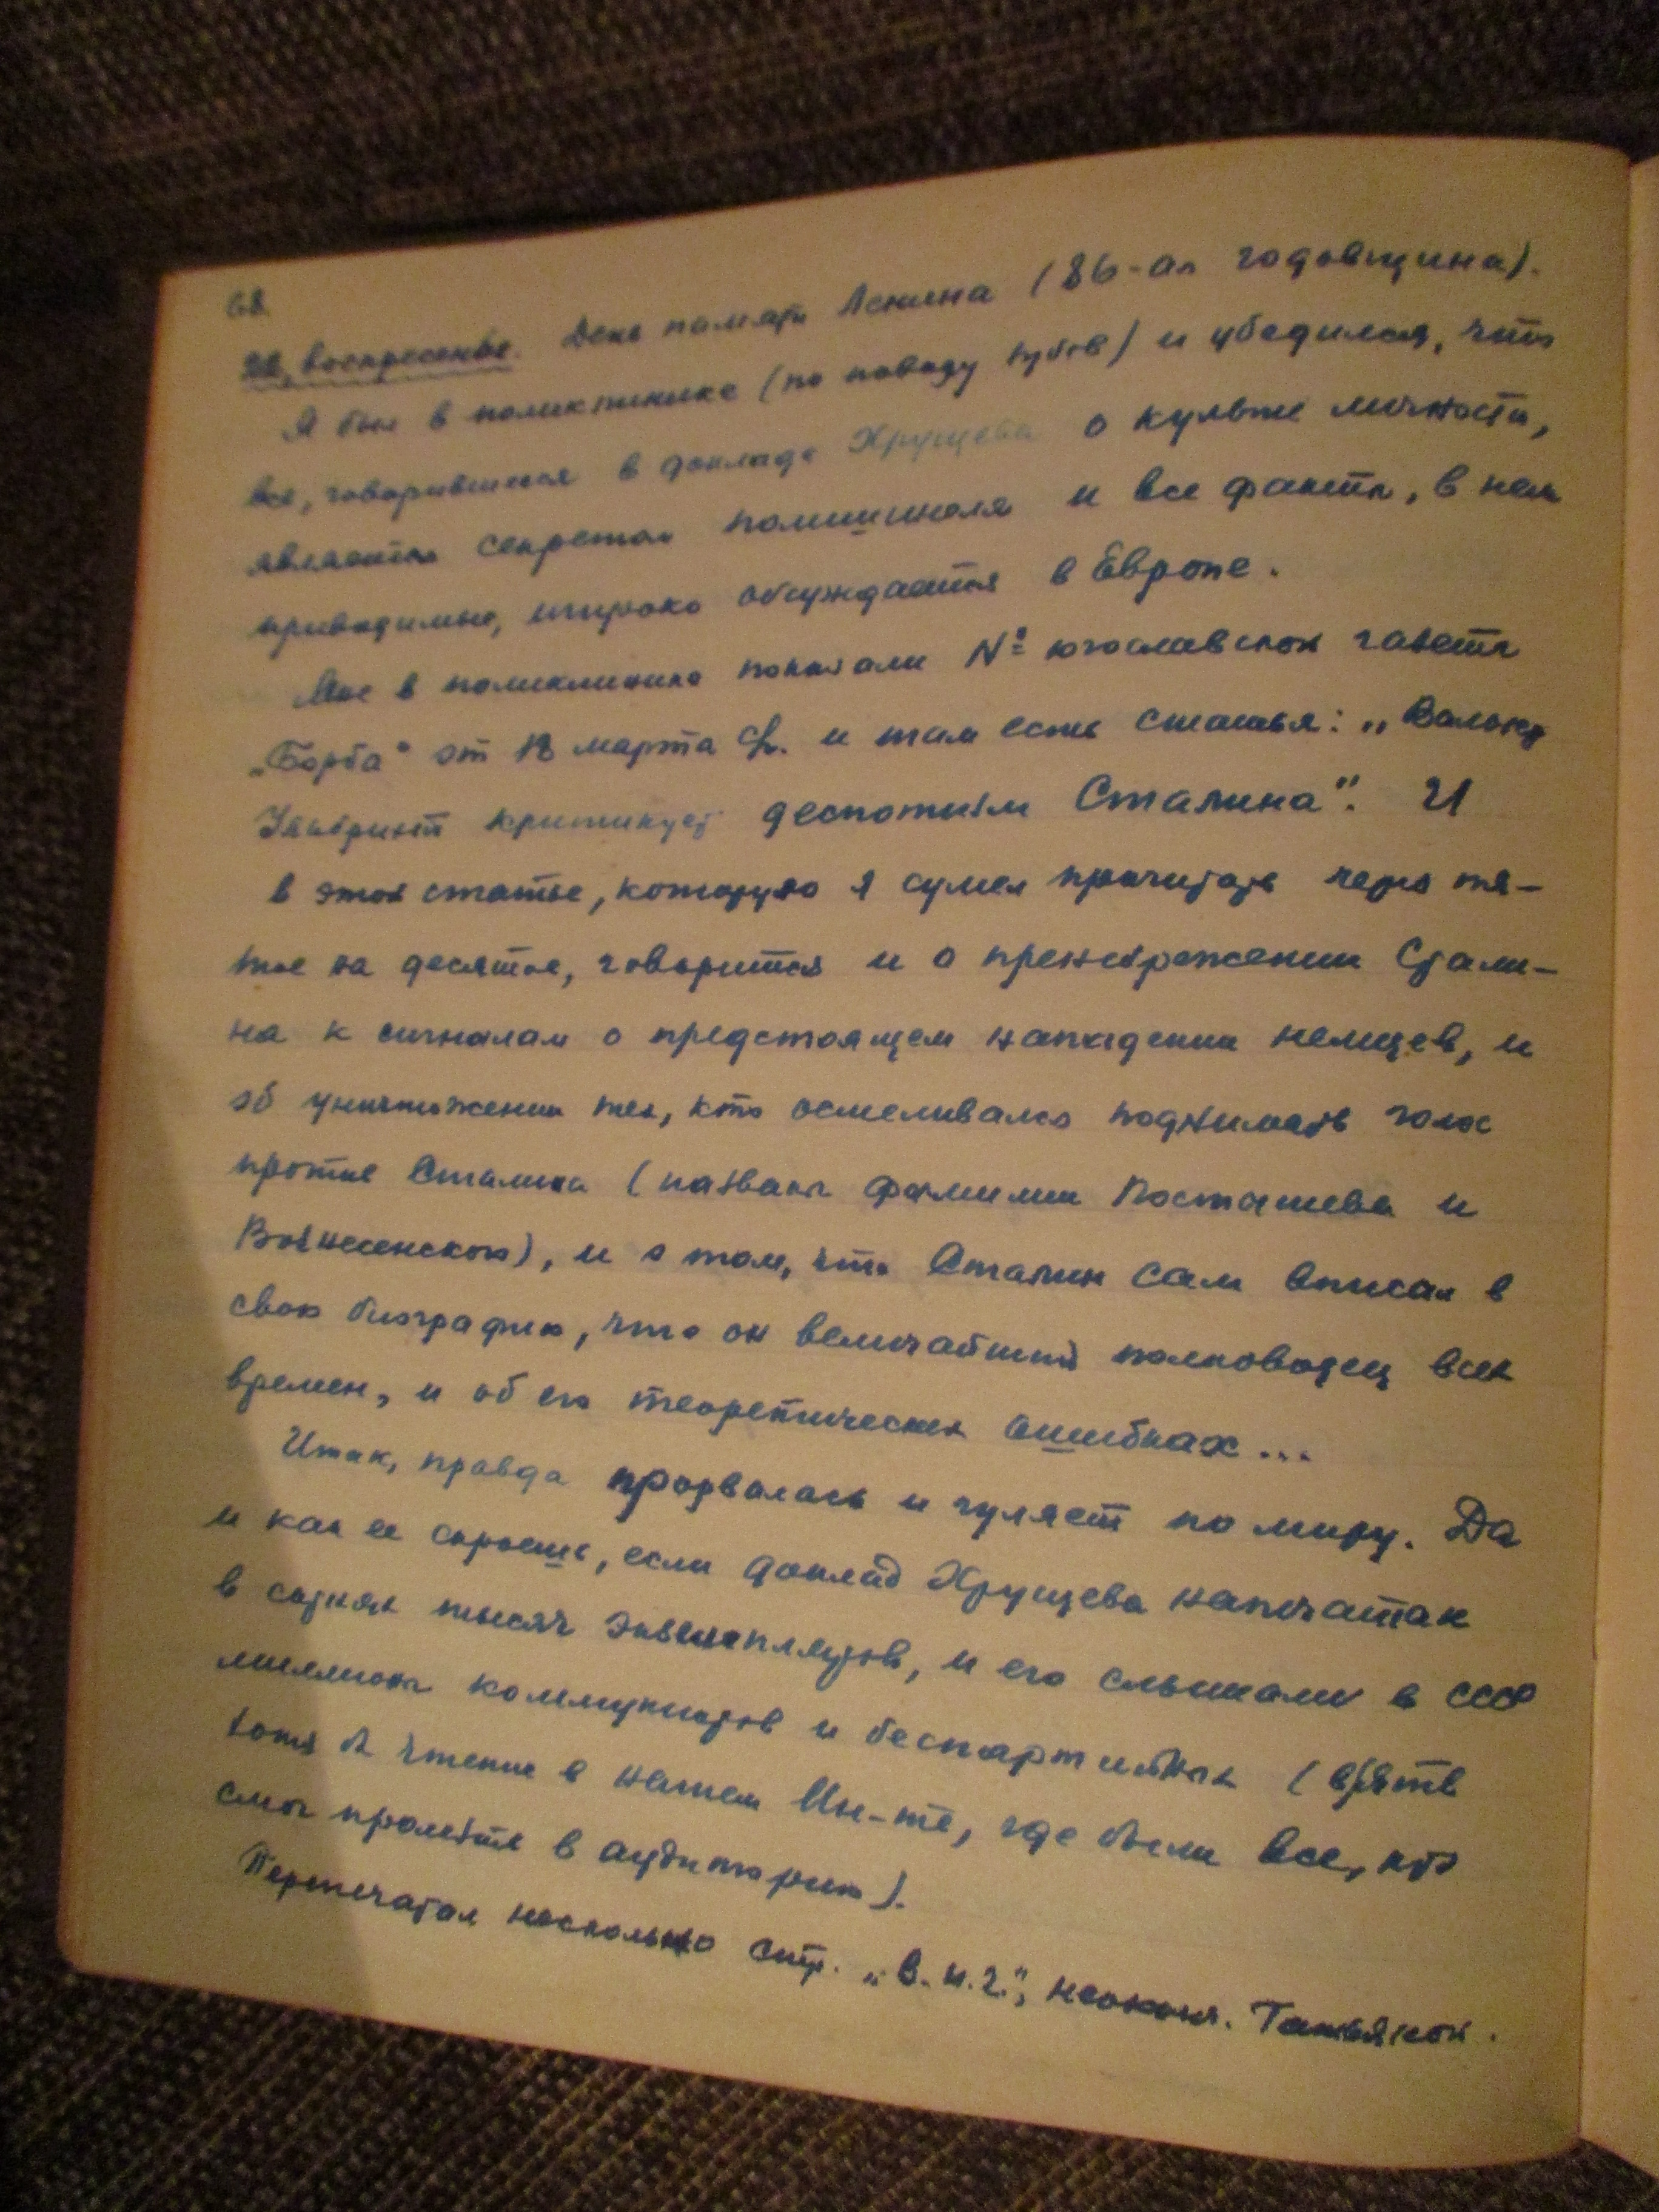 68.
22, воскресенье. День памяти Ленина (86-ая годовщина).
Я был в поликлинике (по поводу зубов) и убедился, что
все, говорившееся в докладе Хрущева о культе личности,
является секретом полишинеля и все факты, в нем
приводимые, широко обсуждаются в Европе.
Мне в поликлинике показали № югославской газеты
„Борба" от 18 марта и там есть статья: „Вальтер
Ульбрихт критикует деспотизм Сталина". И
в этой статье, которую я сумел прочитать через пя-
тое на десятое, говорится и о пренебрежении Стали-
на к сигналам о предстоящем нападении немцев, и
об уничтожении тех, кто осмеливался поднимать голос
против Сталина (названы фамилии Постышева и
Вознесенского), и о том, что Сталин сам вписал в
свою биографию, что он величайший полководец всех
времен, и об его теоретических ошибках...
Итак, правда прорвалась и гуляет по миру. Да
и как ее скроешь, если доклад Хрущева напечатан
в сотнях тысяч экземпляров, и его слышали в СССР
миллионы коммунистов и беспартийных (взять
хотя б чтение в нашем Ин-те, где были все, кто
смог пролезть в аудиторию).
Перепечатал несколько стр. „В.н.2.", Татьяной.